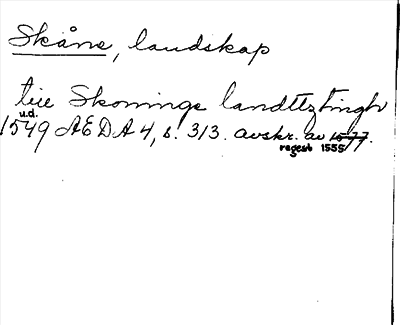 Skåne, landskap
till Skonings landtztingh
u.d.
1549 AEDA 4, s. 313. avskr. av 1577.
regest 1555